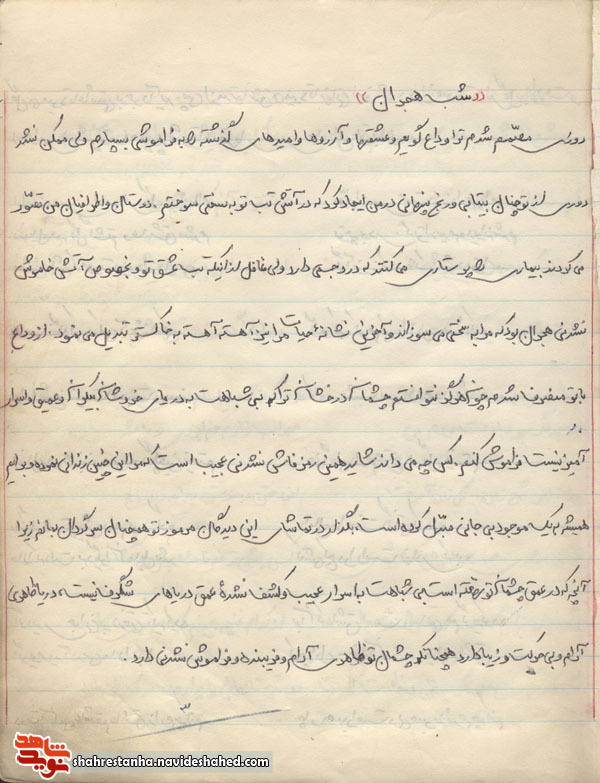 «شب هجران»
روزی مصمّم شدم ترا وداع گویم و عشقها و آرزوها و امیدهای گذشته را به فراموشی بسپارم ولی ممکن نشد
دوری از تو چنان بیتابی و رنج پنهانی در من ایجاد کرد که در آتش تب تو به سختی سوختم. دوستان و اطرافیان من تصّور
می کردند بیماری را پرستاری می کنند که درد جسمی دارد ولی غافل از اینکه تب عشق تو و بخصوص آتش خاموش
نشدنی هجران بود که مرا به سختی می سوزاند و آخرین نشانهٔ حیات مرا نیز آهسته آهسته به خاکستر تبدیل می نمود. از وداع
با تو منصرف شدم چون هرگز نتوانستم چشمان درخشان ترا که بی شباهت به دریای خروشان بیکران و عمیق و اسرار
آمیز نیست فراموش کنم. کس چه می داند شاید همین رمز فاش نشدنی عجیب است که مرا این چنین زندانی نموده و برایم
همیشه به یک موجود بی جانی مبدّل کرده است، بگذار در تماشای این دیدگان مرموز تو همچنان سرگردان بمانم زیرا
آنچه که در عمق چشمان تو نهفته است بی شباهت به اسرار عجیب و کشف نشدهٔ عمق دریاهای شگرف نیست، دریا ظاهری
آرام و بی حرکت و زیبا دارد همچنانکه چشمان تو ظاهری آرام و فریبنده و فراموش نشدنی دارد.
نوید شاهد
shahrestanha.navideshahed.com